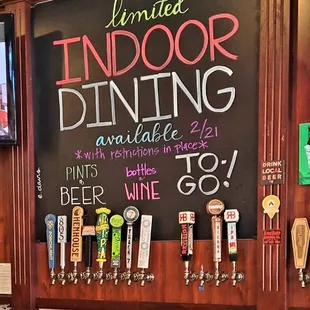 limited
INDOOR
DINING
available 2/21
*with restrictions in place*
PINTS
BEER
bottles
WINE
TO-
GO!
e.davis
DRINK
LOCAL
BEER
HENHOUSE